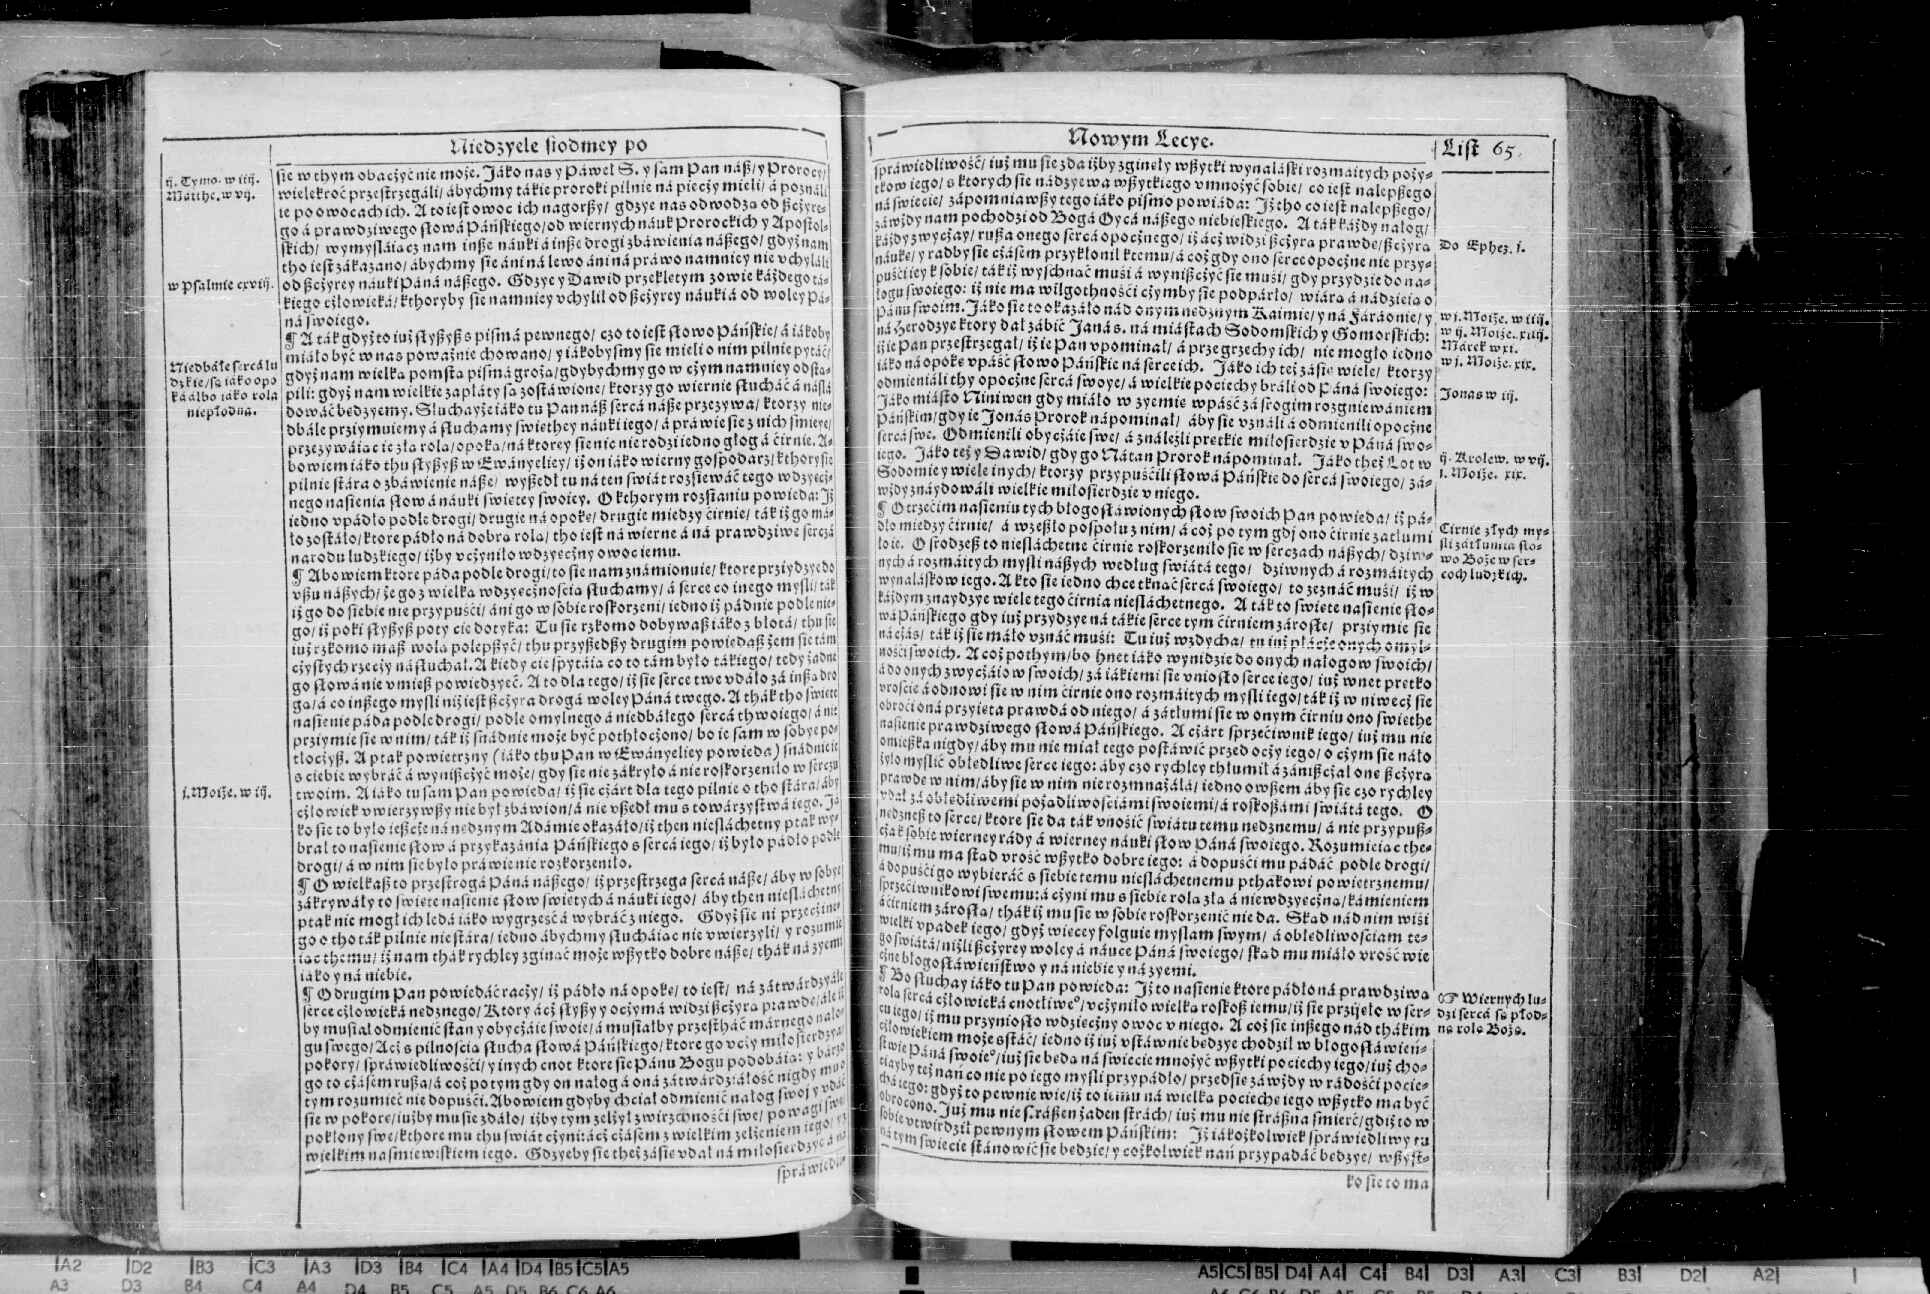 Niedzyele siodmey po
ij. Tymo. w iiij.
Matthe. w vij.
w Psalmie cxviij.
Niedbáłe sercá lu
dzkie/ są iáko opo
ká álbo iáko rola
niepłodna.
j. Moiże. w iij.
sie w thym obaczyć nie może. Jáko nas y Páweł S. y sam Pan náß/ y Prorocy/
wielekroć przestrzegáli/ ábychmy tákie proroki pilnie ná pieczy mieli/ á poználi
ie po owocach ich. A to iest owoc ich nagorßy/ gdzye nas odwodzą od ßczyre-
go á prawdziwego słowá Páńskiego/ od wiernych náuk Prorockich y Apostol-
skich/ wymysláiącz nam inße náuki á inße drogi zbáwienia náßego/ gdyż nam
tho iest zákazano/ ábychmy sie áni ná lewo áni ná práwo namniey nie vchyláli
od ßczyrey náuki Páná náßego. Gdzye y Dawid przeklętym zowie káżdego tá-
kiego człowieká/ kthoryby sie namniey vchylił od ßczyrey náuki á od woley Pá-
ná swoiego.
¶ A ták gdyż to iuż słyßyß s pismá pewnego/ czo to iest słowo Páńskie/ á iákoby
miáło być w nas poważnie chowano/ y iákobysmy sie mieli o nim pilnie pytáć/
gdyż nam wielka pomsta pismá grożą/ gdybychmy go w czym namniey odstą-
pili: gdyż nam wielkie zapłáty są zostáwione/ ktorzy go wiernie słucháć á násla
dowáć będzyemy. Słuchayże iáko tu Pan náß sercá náße przezywa/ ktorzy nie-
dbále prziymuiemy á słuchamy swiethey náuki iego/ á práwie sie z nich śmieie/
przezywáiąc ie zła rola/ opoká/ ná ktorey sie nic nie rodzi iedno głog á ćirnie. A-
bowiem iáko thu słyßyß w Ewányeliey/ iż on iáko wierny gospodarz/ kthory sie
pilnie stára o zbáwienie náße/ wyßedł tu ná ten swiát rozsiewáć tego wdzyęcz-
nego nasienia słow á náuki swiętey swoiey. O kthorym rozsianiu powiedá: Iż
iedno vpádło podle drogi/ drugie ná opokę/ drugie miedzy ćirnie/ ták iż go má-
ło zostáło/ ktore pádło ná dobrą rolą/ tho iest ná wierne á ná prawdziwe sercá
narodu ludzkiego/ iżby vczyniło wdzyęczny owoc iemu.
¶ Abowiem ktore páda podle drogi/ to sie nam známionuie/ ktore przydzye do
vßu náßych/ że go z wielką wdzyęcznością słuchamy/ á serce co inego myśli/ ták
iż go do siebie nie przypuści/ áni go w sobie roskorzeni/ iedno iż pádnie podle nie-
go/ iż poki słyßyß poty cie dotyka: Tu sie rzkomo dobywaß iáko z błotá/ thu sie
iuż rzkomo maß wolą polepßyć/ thu przyßedßy drugim powiedaß żem sie tám
czystych rzeczy násłuchał. A kiedy cie spytáią co to tám było tákiego/ tedy żadne
go słowá nie vmieß powiedzyeć. A to dla tego/ iż sie serce twe vdało zá inßą dro
gą/ á co inßego myśli niż iest ßczyra drogá woley Páná twego. A thák tho swięte
nasienie páda podle drogi/ podle omylnego á niedbáłego sercá thwoiego/ á nie
prziymie sie w nim/ ták iż snádnie może być pothłoczono/ bo ie sam w sobye po-
tłoczyß. A ptak powietrzny (iáko thu Pan w Ewányeliey powieda) snádnie ie
s ciebie wybráć á wynißczyć może/ gdy sie nie zákryło á nie roskorzeniło w sercu
twoim. A iáko tu sam Pan powieda/ iż sie czárt dla tego pilnie o tho stára/ áby
człowiek vwierzywßy nie był zbáwion/ á nie vßedł mu s towárzystwá iego. Já
ko sie to było ießcze ná nędznym Adámie okazáło/ iż then nieslachetny ptak wy-
brał to nasienie słowá przykazánia Páńskiego s sercá iego/ iż było pádło podle
drogi/ á w nim sie było práwie nie rozkorzeniło.
¶ O wielkaß to przestrogá Páná náßego/ iż przestrzega sercá náße/ áby w sobye
zákrywáły to swięte nasienie słow swiętych á náuki iego/ áby then nieslachetny
ptak nic mogł ich ledá iáko wygrześć á wybráć z niego. Gdyż sie ni przecz ine-
go o tho ták pilnie nie stára/ iedno ábychmy słucháiąc nie vwierzyli/ y rozumie
iąc themu/ iż nam thák rychley zginąć może wßytko dobre náße/ thák ná zyemi
iáko y ná niebie.
¶ O drugim Pan powiedáć raczy/ iż pádło ná opokę/ to iest/ ná zátwárdzyáłe
serce człowieká nędznego/ Ktory ácz słyßy y oczymá widzi ßczyrą prawdę/ ále iż
by musiał odmienić stan y obyczáie swoie/ á musiałby przestháć márnego nało-
gu swego/ Acz s pilnością słucha słowá Páńskiego/ ktore go vczy miłosierdzya/
pokory/ spráwiedliwości/ y inych cnot ktore sie Pánu Bogu podobáią: y bárzo
go to czásem rußa/ á coż potym gdy on nałog á oná zátwárdziáłość nigdy mu o
tym rozumieć nie dopuści. Abowiem gdyby chciał odmienić nałog swoy y vdáć
sie w pokorę/ iużby mu sie zdáło/ iżby tym zelżył zwirzchności swe/ powagi swe
pokłony swe/ kthore mu thu swiát czyni: ácz czásem z wielkim zelżeniem iego/ y z
wielkim nasmiewiskiem iego. Gdzyeby sie też zásie vdał ná miłosierdzye á ná
spráwiedli-
Nowym Lecye.
List 65.
spráwiedliwość/ iuż mu sie zda iżby zginęły wßytki wynaláski rozmáitych poży-
tkow iego/ s ktorych sie nádzyewa wßytkiego vmnożyć sobie/ co iest nalepßego
ná swiecie/ zápomniawßy tego iáko pismo powiáda: Iż tho co iest nalepßego/
záwżdy nam pochodzi od Bogá Oycá náßego niebieskiego. A ták káżdy nałog/
káżdy zwyczay/ rußa onego sercá opocznego/ iż ácz widzi ßczyrą prawdę/ ßczyrą
náukę/ y radby sie czásem przykłonił k temu/ á coż gdy ono serce opoczne nie przy-
puści iey k sobie/ ták iż wyschnąć muśi á wynißczyć sie muśi/ gdy przydzie do ná-
łogu swoiego: iż nie ma wilgothności czymby sie podpárło/ wiárą á nádzieią o
Pánu swoim. Jáko sie to okazáło nád onym nędznym Kaimie/ y ná Fáráonie/ y
ná Herodzye ktory dał zábić Janá s. ná miástach Sodomskich y Gomorskich:
iż ie Pan przestrzegał/ iż ie Pan vpominał/ á prze grzechy ich/ nie mogło iedno
iáko ná opokę vpáść słowo Páńskie ná serce ich. Jáko ich też zásie wiele/ ktorzy
odmieniáli thy opoczne sercá swoye/ á wielkie pociechy bráli od Páná swoiego:
Jáko miásto Niniwen gdy miáło w zyemię wpáść zá srogim rozgniewániem
Páńskim/ gdy ie Jonas Prorok nápominał/ áby sie vználi á odmienili opoczne
sercá swe. Odmienili obyczáie swe/ á ználeźli prętkie miłosierdzie v Páná swo-
iego. Jáko też y Dawid/ gdy go Nátan Prorok nápominał. Jáko też Lot w
Sodomie y wiele inych/ ktorzy przypuścili słowá Páńskie do sercá swoiego/ zá-
wżdy znaydowáli wielkie miłosierdzie v niego.
¶ O trzecim nasieniu tych błogosłáwionych słow swoich Pan powieda/ iż pá-
dło miedzy ćirnie/ á wzeßło pospołu z nim/ á coż po tym gdj ono ćirnie zátłumi
ło ie. O srodzeß to nieslachetne ćirnie roskorzeniło sie w serczach náßych/ dziw-
nych á rozmáitych myśli náßych według swiátá tego/ dziwnych á rozmáitych
wynaláskow iego. A kto sie iedno chce tknąć sercá swoiego/ to zeznáć muśi/ iż w
káżdym znaydzye wiele tego ćirnia nieslachetnego. A ták to swięte nasienie sło-
wá Páńskiego gdy iuż przydzye ná tákie serce tym ćirniem zárosłe/ przymie sie
ná czás/ ták iż sie máło vznáć muśi: Tu iuż wzdycha/ tu iuż płácze onych omył-
ności swoich. A coż po thym/ bo hnet iáko wynidzie do onych nałogow swoich/
á do onych zwyczáiow swoich/ zá iákiemi sie vniosło serce iego/ iuż wnet prętko
vroście á odnowi sie w nim ćirnie ono rozmáitych myśli iego/ ták iż w niwecz sie
obroci oná przyięta prawdá od niego/ á zátłumi sie w onym ćirniu ono swięthe
nasienie prawdziwego słowá Páńskiego. A czárt sprzeciwnik iego/ iuż mu nie
omießka nigdy/ áby mu nie miał tego postáwić przed oczy iego/ o czym sie náło
żyło myślić obłędliwe serce iego: áby czo rychley thłumił á zánißczał onę ßczyrą
prawdę w nim/ áby sie w nim nie rozmnażáłá/ iedno owßem áby sie czo rychley
vdał zá obłędliwemi pożądliwościámi swoiemi/ á roskoßámi swiátá tego. O
nędzneß to serce/ ktore sie da ták vnośić swiátu temu nędznemu/ á nie przypuß-
cza k sobie wierney rády á wierney náuki słow Páná swoiego. Rozumieiąc the-
mu/ iż mu ma stąd vrość wßytko dobre iego: á dopuści mu pádáć podle drogi/
á dopuści go wybieráć s siebie temu nieslachetnemu pthakowi powietrznemu/
sprzeciwnikowi swemu: á czyni mu s siebie rolą złą á niewdzyęczną/ kámieniem
á ćirniem zárosłą/ thák iż mu sie w sobie roskorzenić nie da. Skąd nád nim wiśi
wielki vpadek iego/ gdyż więcey folguie myślam swym/ á obłędliwościam te-
go swiátá/ niżli ßczyrey woley á náuce Páná swoiego/ skąd mu miáło vrość wie
czne błogosłáwieństwo y ná niebie y ná zyemi.
¶ Bo słuchay iáko tu Pan powieda: Iż to nasienie ktore pádło ná prawdziwą
rolą sercá człowieká cnotliwe°/ vczyniło wielką roskoß iemu/ iż sie przijęło w ser-
cu iego/ iż mu przyniosło wdzięczny owoc v niego. A coż sie inßego nád thákim
człowiekiem może sstáć/ iedno iż iuż vstáwnie będzye chodził w błogosłáwień-
stwie Páná swoie°/ iuż sie będą ná swiecie mnożyć wßytki pociechy iego/ iuż cho-
ciayby też nań co nie po iego myśli przypádło/ przedsię záwżdy w rádości pocie-
cha iego: gdyż to pewnie wie/ iż to iemu ná wielką pociechę iego wßytko ma być
obrocono. Iuż mu nie straßen żaden strách/ iuż mu nie straßna śmierć/ gdiż to w
sobie vtwirdził pewnym słowem Páńskim: Iż iákożkolwiek spráwiedliwy tu
ná tym swiecie stánowić sie będzie/ y cożkolwiek nań przypádáć będzye/ wßyst-
ko sie to ma
Do Ephez. j.
w j. Moiże. w iiij.
w ij. Moiże. xiiij.
Márek w xi.
w j. Moiże. xix.
Jonas w iij.
ij. Krolew. w vij.
j. Moiże. xix.
Cirnie złych my-
śli zátłumia sło-
wo Boże w ser-
coch ludzkich.
☞ Wiernych lu-
dzi sercá są płod-
ną rolą Bożą.
A2 D2 B3 C3 A3 D3 B4 C4 A4 D4 B5 C5 A5
A5 C5 B5 D4 A4 C4 B4 D3 A3 C3 B3 D2 A2
A3 D3 B4 C4 A4 D4 B5 C5 A5 D5 B6 C6 A6